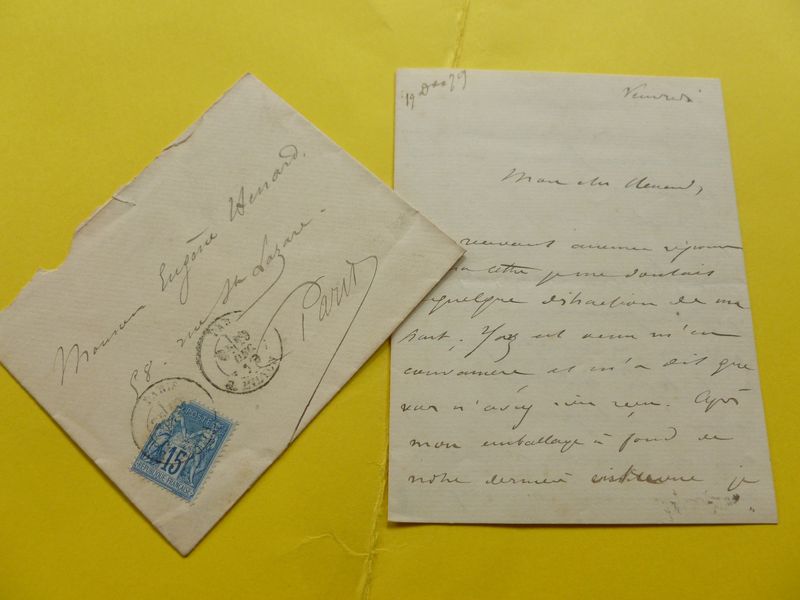 Monsieur Eugène Henrard,
58. rue St Lazare.
Paris
PARIS
15
REPUBLIQUE FRANÇAISE
19 Dec 79
Vendredi
Mon cher Henrard,
recevant aucune réponse
cette je me doutais
quelque distraction de ma
part; est venu m'en
convaincre et m'a dit que
vous n'aviez rien reçu. Après
mon emballage à fond de
notre dernière je